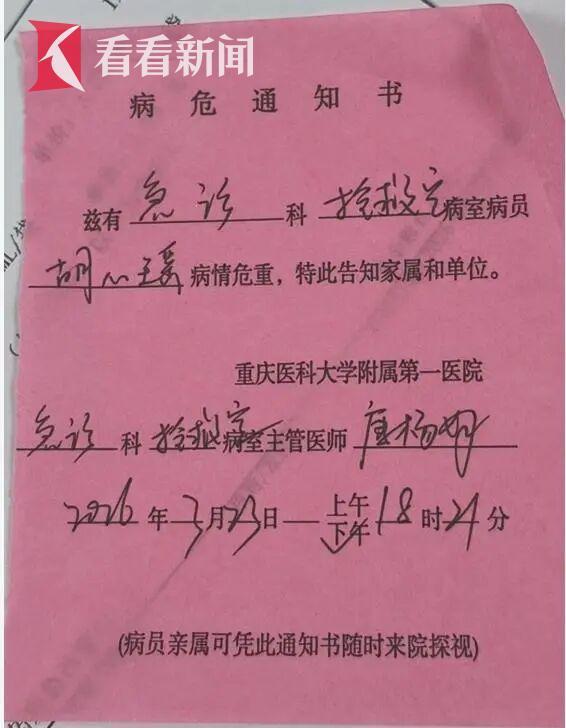 看看新闻
病危通知书
兹有 急诊 科 抢救室 病室病员
胡心瑗 病情危重，特此告知家属和单位。
重庆医科大学附属第一医院
急诊 科 抢救室 病室主管医师
2026 年 3 月 23 日 上午
下午 18 时 21 分
(病员亲属可凭此通知书随时来院探视)